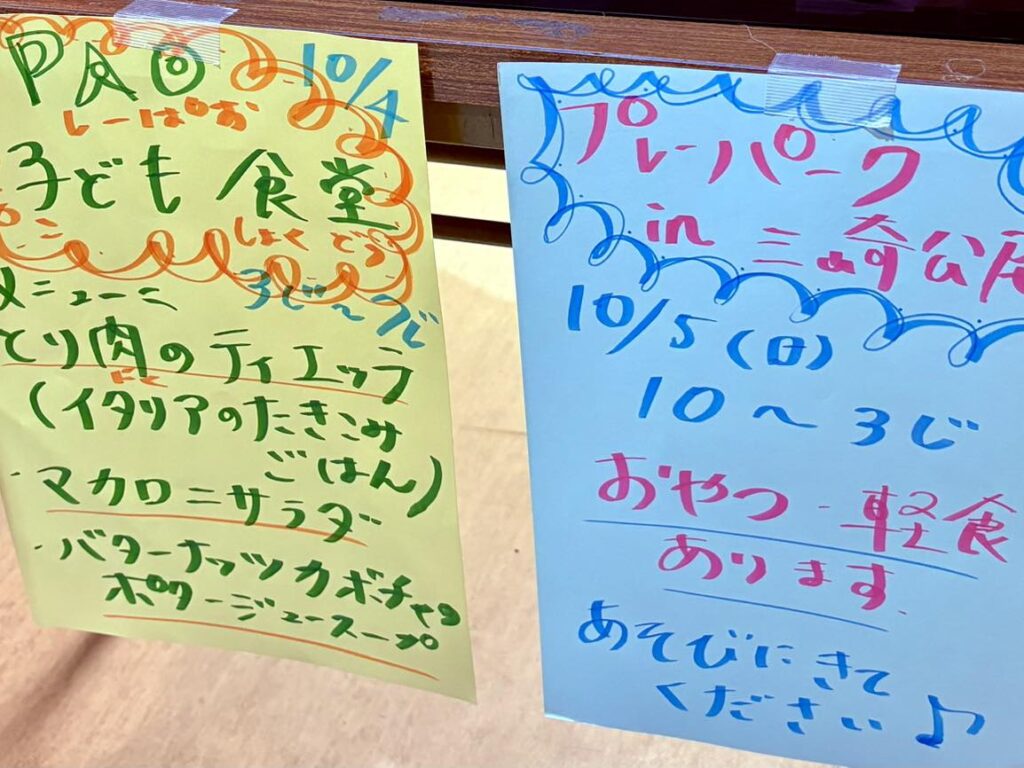 PAO
しーぱお
10/4
子ども食堂
こ
しょくどう
メニューニ
3じ〜
とり肉のティエッラ
にく
(イタリアのたきこみ
ごはん)
・マカロニサラダ
・バターナッツカボチャの
ポタージュースープ
プレーパーク
in 三崎公
10/5(日)
10〜3じ
おやつ・軽食
あります.
あそびにきて
ください♪